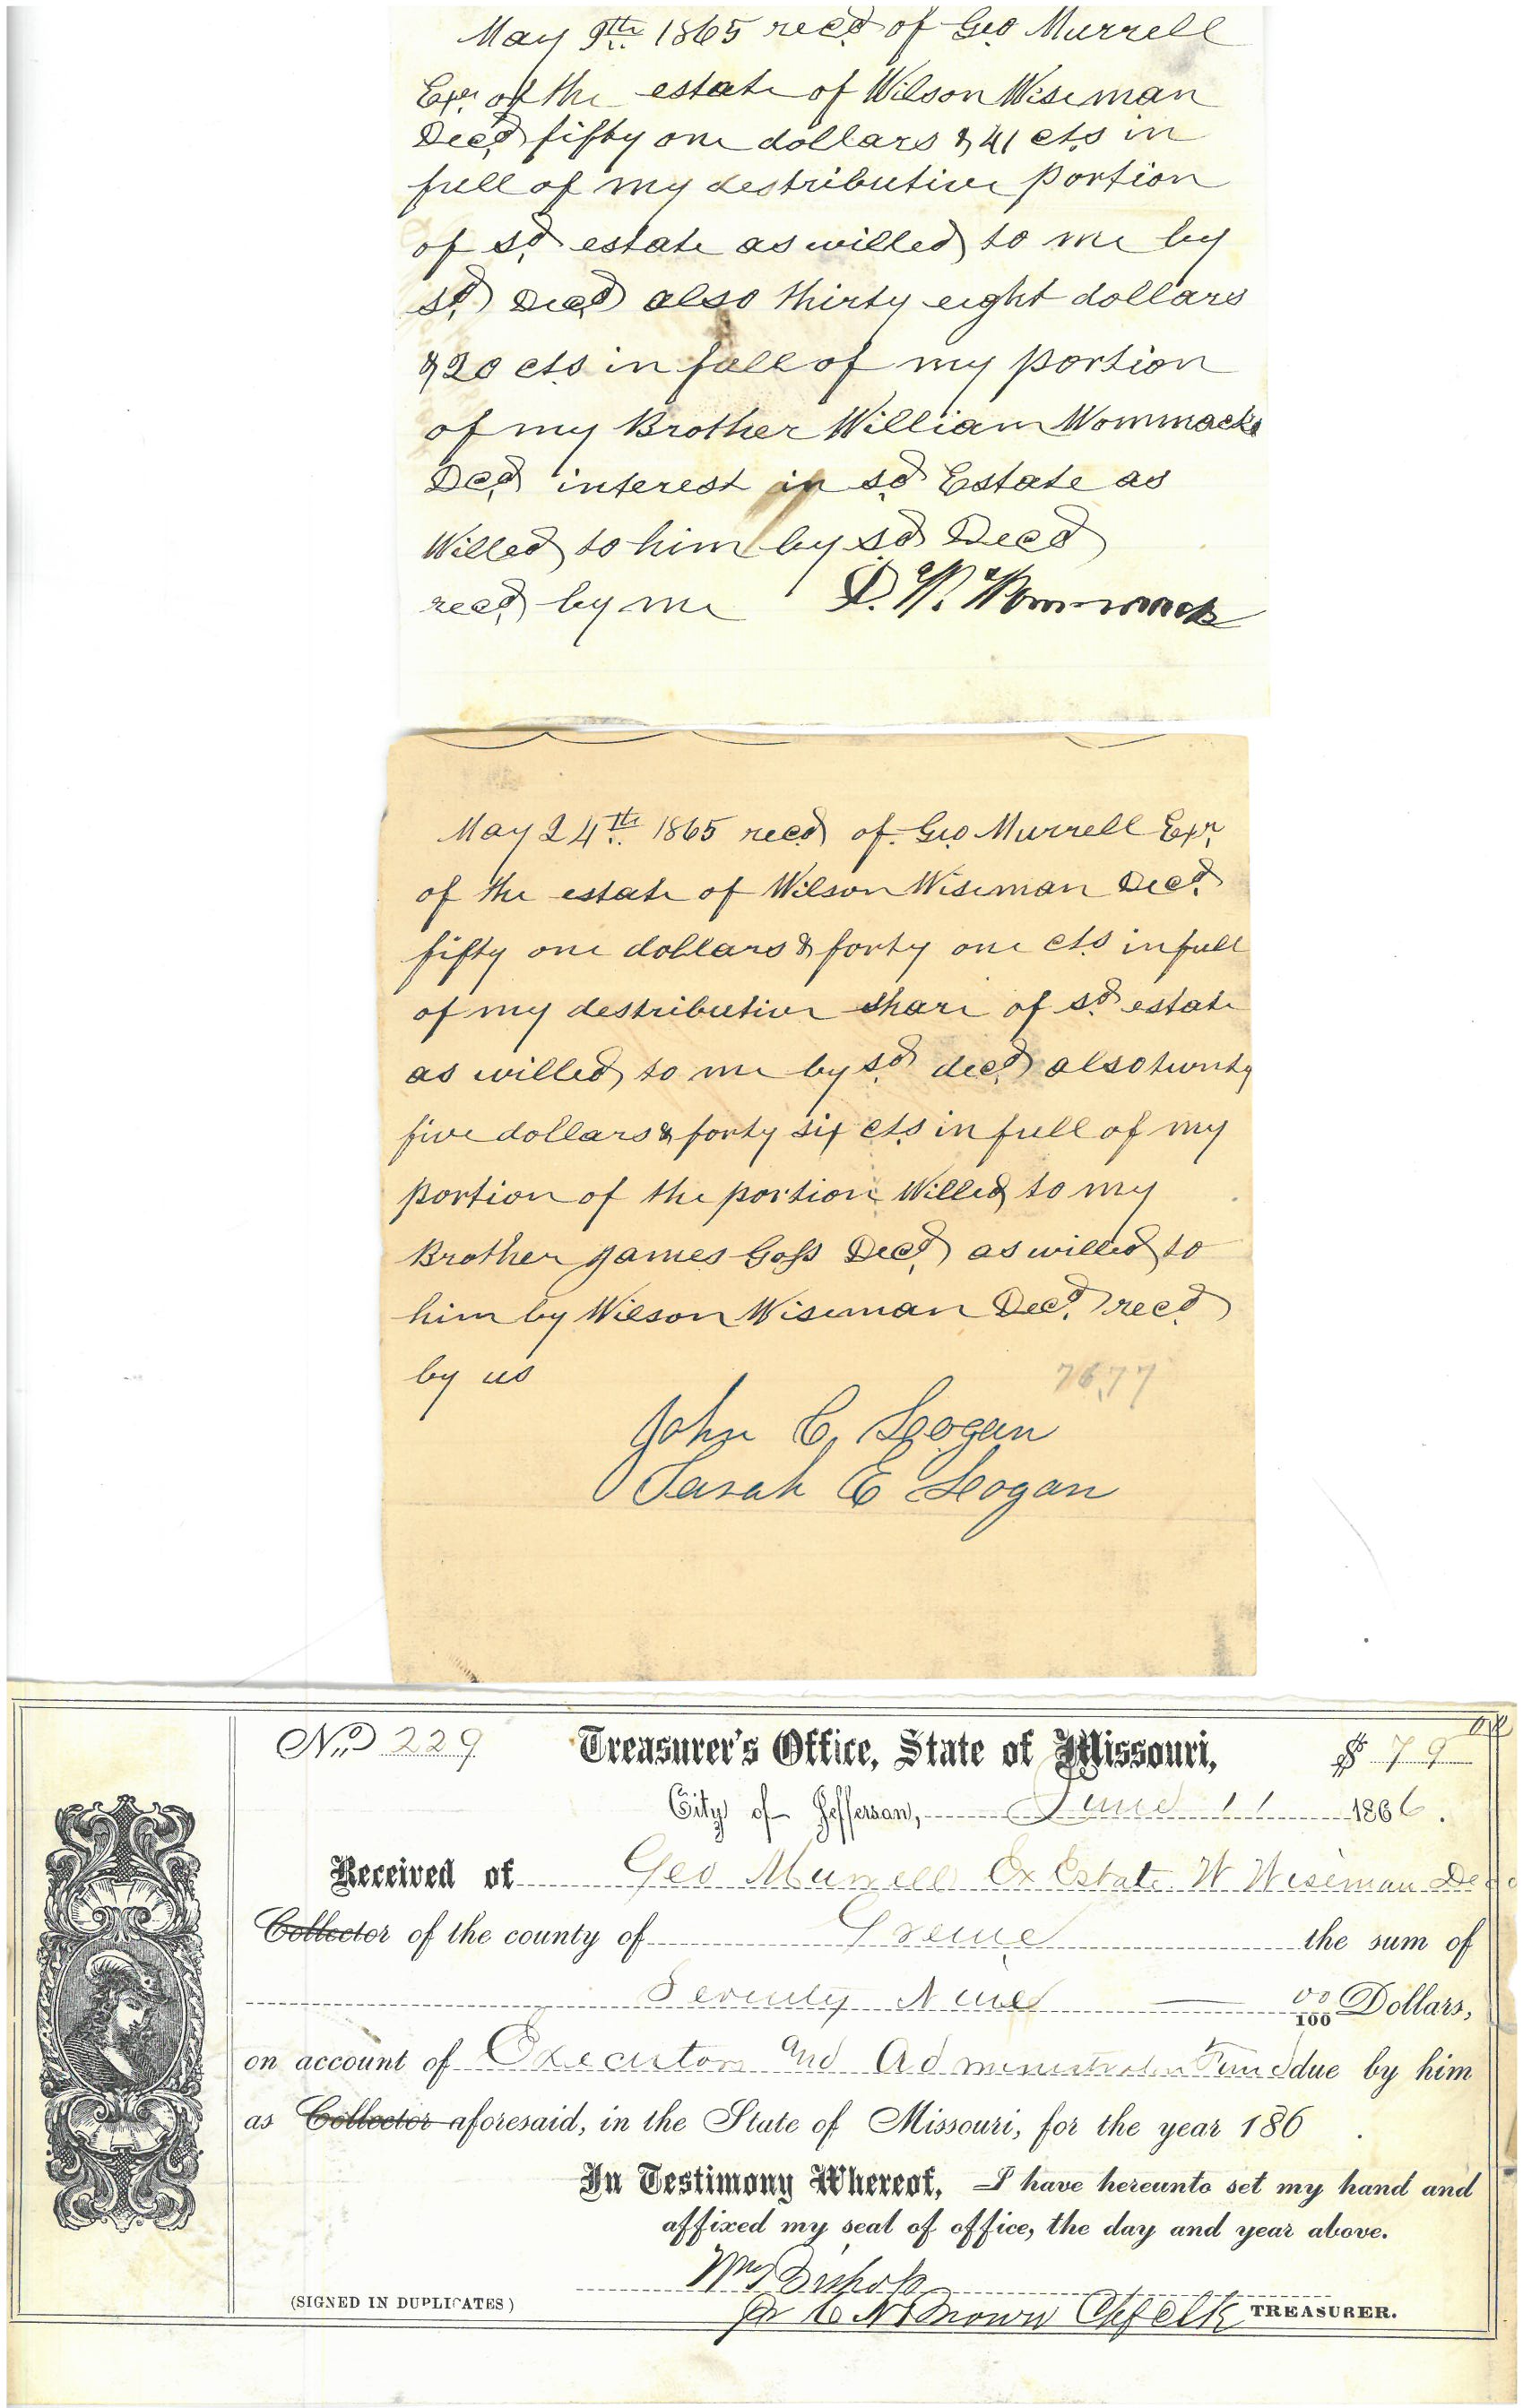 May 9th 1865 recd of Geo Murrell
Exr of the estate of Wilson Wiseman
Decd fifty one dollars & 41 cts in
full of my destributive portion
of sd estate as willed to me by
sd Decd also thirty eight dollars
& 20 cts in full of my portion
of my Brother William Wommacks
Decd interest in sd Estate as
Willed to him by sd Decd
recd by me D. W. Wommack
May 24th 1865 recd of Geo Murrell Exr
of the estate of Wilson Wiseman Decd
fifty one dollars & forty one cts in full
of my destributive share of sd estate
as willed to me by sd decd also twenty
five dollars & forty six cts in full of my
portion of the portion Willed to my
Brother James Goss Decd as willed to
him by Wilson Wiseman Decd recd
by us
76,77
John C. Logan
Sarah E Logan
No 229 Treasurer's Office, State of Missouri, $ 79
City of Jefferson, June 11 1866.
Received of Geo Murrell Ex Estate W Wiseman Decd
Collector of the county of Greene the sum of
Seventy Nine 00/100 Dollars,
on account of Executors and Administrators Fund due by him
as Collector aforesaid, in the State of Missouri, for the year 186 .
In Testimony Whereof, I have hereunto set my hand and
affixed my seal of office, the day and year above.
Wm Bishop
(SIGNED IN DUPLICATES) Chf Clk TREASURER.